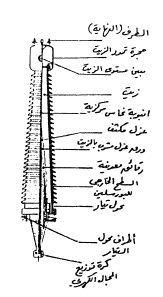 الطرف (النهاية)
حجرة تمدد الزيت
مبين مستوى الزيت
زيت
انبوبة نحاس مركزية
عزل مكثف
ورق عزل مشبع بالزيت
رقائق معدنية
السطح الخارجي
للبورسلين
محول تيار
أطراف محول
التيار
كرة توزيع
المجال الكهربي